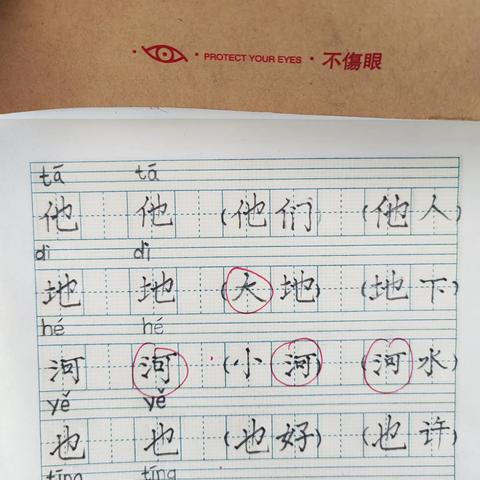 · PROTECT YOUR EYES · 不傷眼
tā tā
他 他 (他们) (他人)
dì dì
地 地 (大地) (地下)
hé hé
河 河 (小河) (河水)
yě yě
也 也 (也好) (也许)
tīng tīng